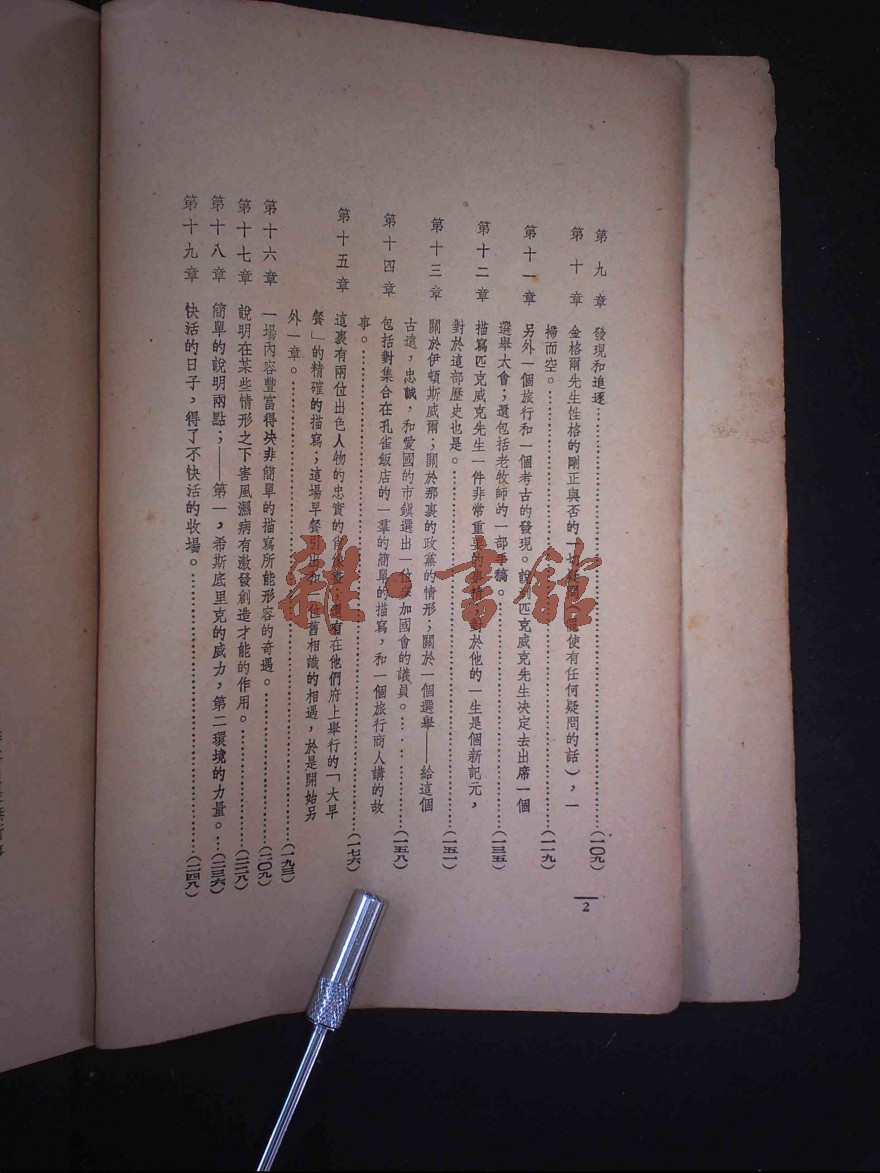 第九章　發現和追逐……(一〇九)
第十章　金格爾先生性格的剛正與否的一切疑問(使有任何疑問的話)，一
掃而空。……(一一九)
第十一章　另外一個旅行和一個考古的發現。說到匹克威克先生决定去出席一個
選舉大會；還包括老牧師的一部手稿。……(一三五)
第十二章　描寫匹克威克先生一件非常重要的事情，對於他的一生是個新記元，
對於這部歷史也是。……(一五一)
第十三章　關於伊頓斯威爾；關於那裏的政黨的情形；關於一個選舉——給這個
古遠，忠誠，和愛國的市鎭選出一位參加國會的議員。……(一五八)
第十四章　包括對集合在孔雀飯店的一羣的簡單的描寫，和一個旅行商人講的故
事。……(一七六)
第十五章　這裏有兩位出色人物的忠實的肖像畫；還有在他們府上舉行的「大早
餐」的精確的描寫；這場早餐引出和一位舊相識的相遇，於是開始另
外一章。……(一九三)
第十六章　一場內容豐富得决非簡單的描寫所能形容的奇遇。……(二〇九)
第十七章　說明在某些情形之下害風濕病有激發創造才能的作用。……(二二八)
第十八章　簡單的說明兩點；——第一，希斯底里克的威力，第二環境的力量。…(二三六)
第十九章　快活的日子，得了不快活的收場。……(二四八)
2
雜·書館